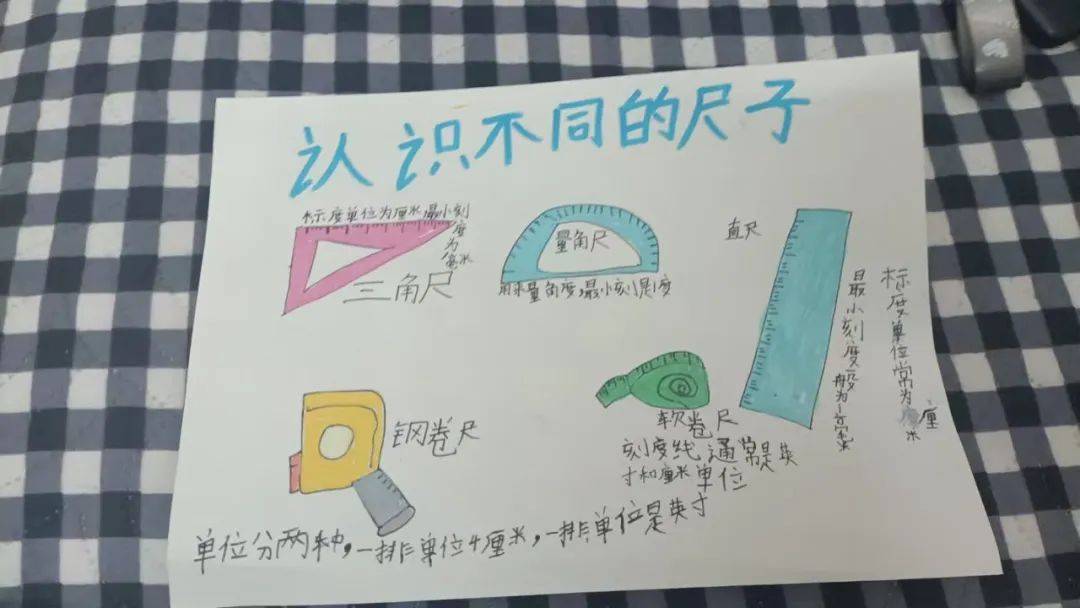 认识不同的尺子
标度单位为厘米最小刻
度为毫米
三角尺
量角尺
用来量角度最小刻是1度
直尺
最小刻度般为1毫
标度单位常为厘米
钢卷尺
软卷尺
刻度线通常是英
寸和厘米单位
单位分两种,一排单位厘米,一排单位是英寸